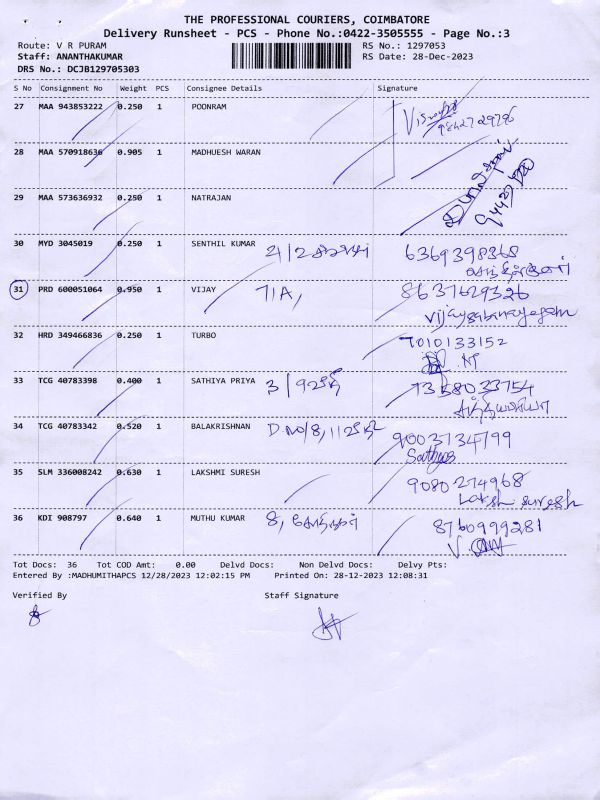 THE PROFESSIONAL COURIERS, COIMBATORE
Delivery Runsheet - PCS - Phone No.:0422-3505555 - Page No.:3
Route: V R PURAM RS No.: 1297053
Staff: ANANTHAKUMAR RS Date: 28-Dec-2023
DRS No.: DCJB129705303
S No Consignment No Weight PCS Consignee Details Signature
27 MAA 943853222 0.250 1 POONRAM
28 MAA 570918636 0.905 1 MADHUESH WARAN
29 MAA 573636932 0.250 1 NATRAJAN
30 MYD 3045019 0.250 1 SENTHIL KUMAR 6369398368
31 PRD 600051064 0.950 1 VIJAY 71A, 8637629326
vijaysabanayagam
32 HRD 349466836 0.250 1 TURBO 7010133152
33 TCG 40783398 0.400 1 SATHIYA PRIYA 7358033754
சத்தியபிரியா
34 TCG 40783342 0.520 1 BALAKRISHNAN 9003734799
Sathya
35 SLM 336008242 0.630 1 LAKSHMI SURESH 9080274968
Laksh suresh
36 KDI 908797 0.640 1 MUTHU KUMAR 8, 8760999281
Tot Docs: 36 Tot COD Amt: 0.00 Delvd Docs: Non Delvd Docs: Delvy Pts:
Entered By :MADHUMITHAPCS 12/28/2023 12:02:15 PM Printed On: 28-12-2023 12:08:31
Verified By Staff Signature